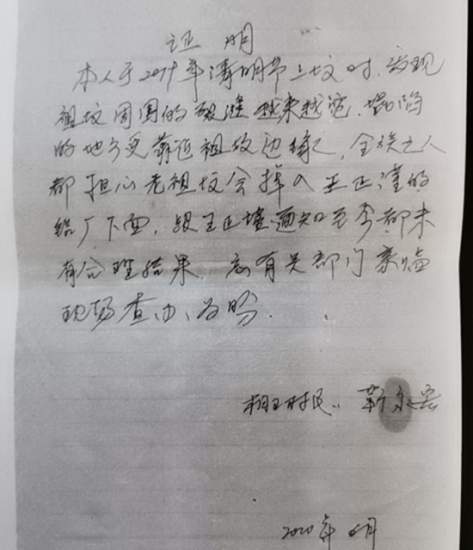 证明
本人于2019年清明节上坟时，发现
祖坟周围的裂缝越来越宽，塌陷
的地方更靠近祖坟边缘，全族之人
都担心老祖坟会掉入王正
厂下面，王正通知至今都未
有合理结果。望有关部门亲临
现场查办，为盼.
村民：靳
2020年6月